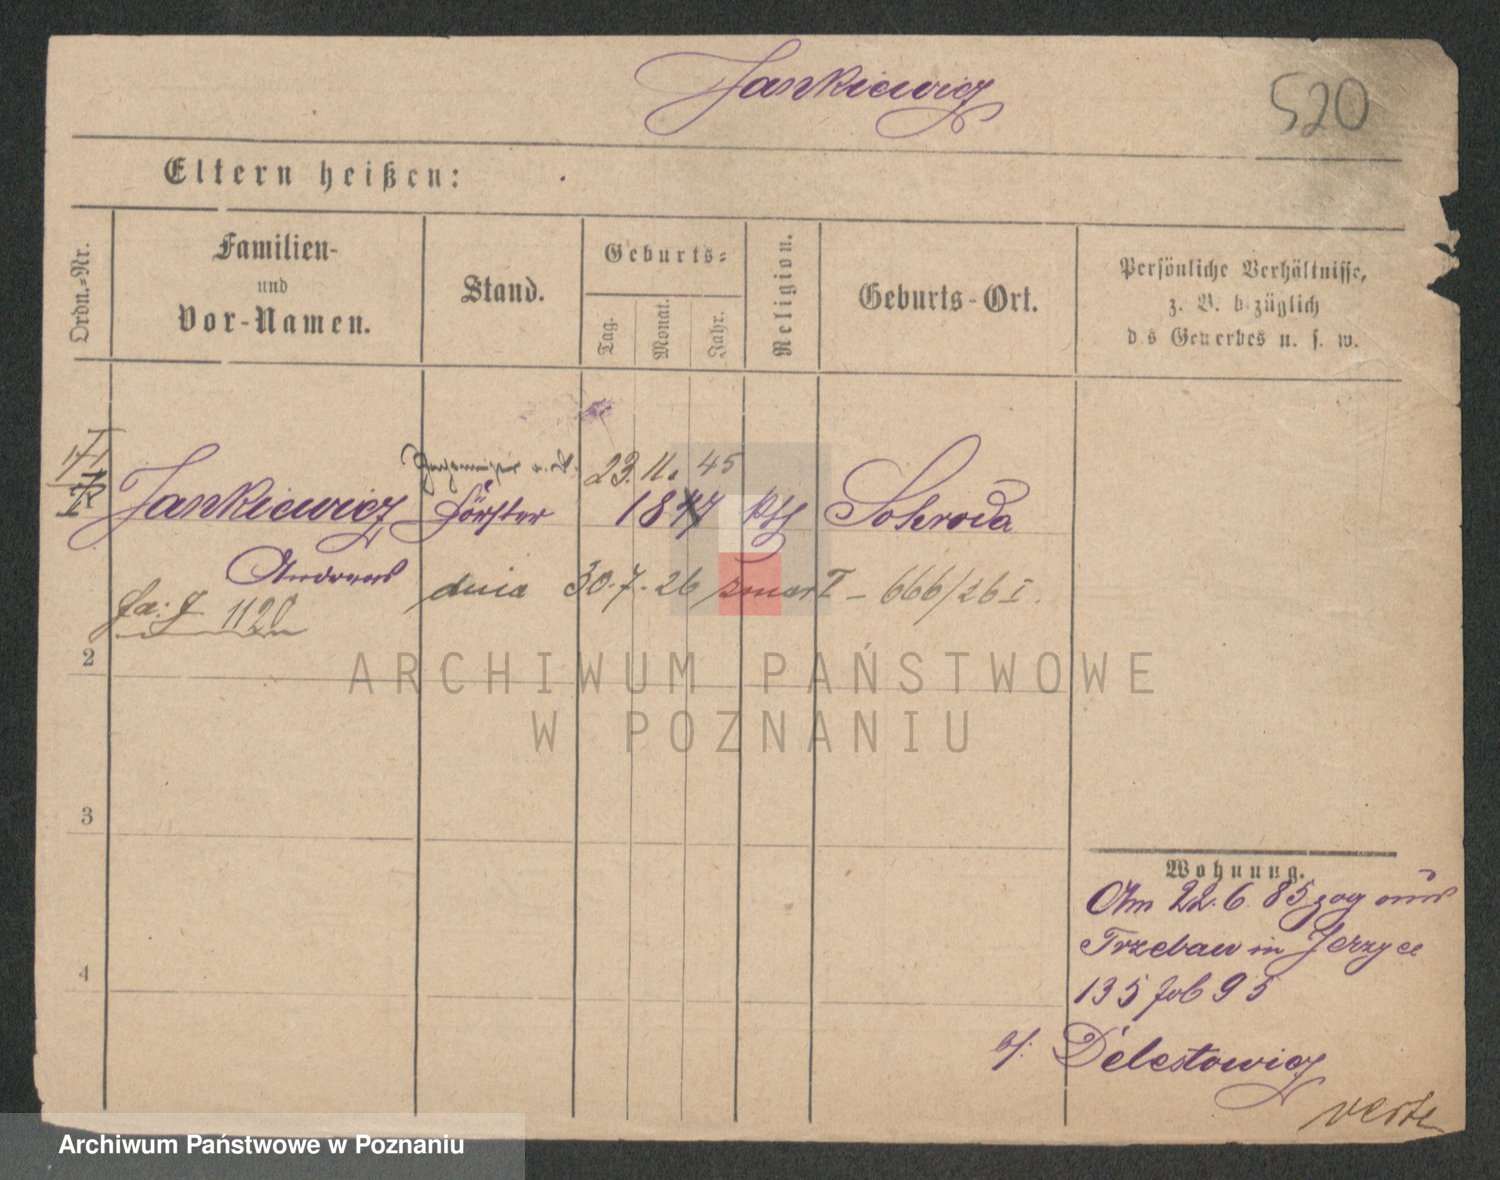 Jankiewicz
520
Eltern heißen:
Ordn.=Nr.
Familien-
und
Vor-Namen.
Stand.
Geburts=
Tag.
Monat.
Jahr.
Religion.
Geburts-Ort.
Persönliche Verhältnisse,
z. B. bezüglich
des Gewerbes u. s. w.
23. 11. 45
Jankiewicz Förster 1847 kth Schroda
Andreas
dnia 30.7.26 zmarł - 666/26 I.
1120
2
ARCHIWUM PAŃSTWOWE
W POZNANIU
3
4
Wohnung.
Am 22.6.85 zog aus
Trzebaw in Jerzyce
135 fol 95
b/: Delestowicz
verte
Archiwum Państwowe w Poznaniu